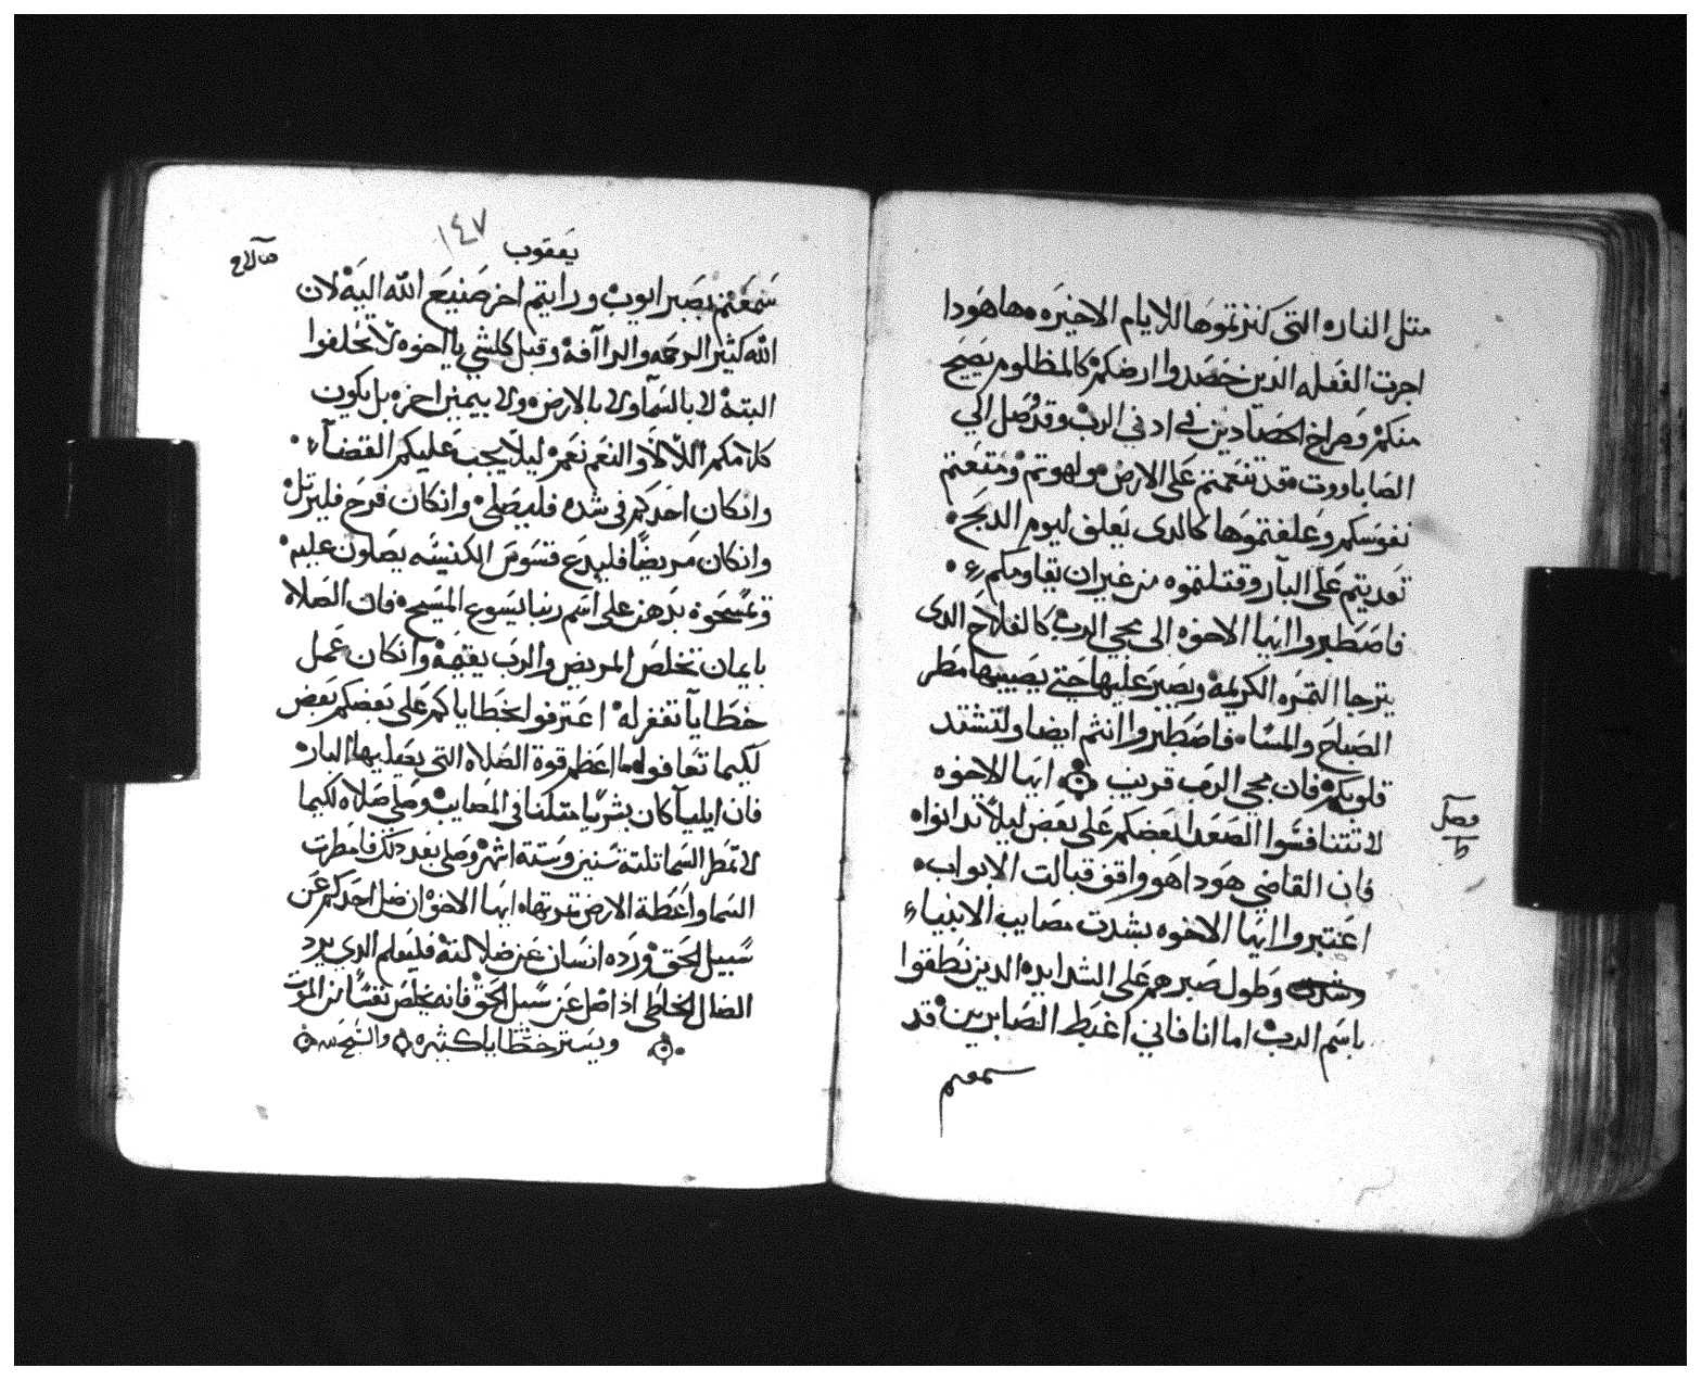 متل الناره التى كنزتموها للايام الاخيره ه ها هودا
اجرت الفعله الدين حصدوا ارضكم كالمظلوم يصيح
منكم وصراخ الحصادين فى ادنى الرب وقد وصل الى
الصاباووت ه قد تنعمتم على الارض ولهوتم ومتعتم
نفوسكم وعلفتموها كالدى يعلف ليوم الدبح ٠
تعديتم على البار وقتلتموه من غير ان يقاومكم ٠
فاصطبروا ايها الاخوه الى مجى الرب كالفلاح الدى
يترجا التمره الكريمة ويصبر عليها حتى يصيبها مطر
الصباح والمسا ٠ فاصطبروا انتم ايضا ولتشتد
قلوبكم فان مجى الرب قريب ايها الاخوه
لا تتنافسوا الصعدا بعضكم على بعض ليلا تدانوا ه
فان القاضى هودا هو واقف قبالت الابواب ٠
اعتبروا ايها الاخوه بشدت مصايب الانبياء
وطول صبرهم على الشدايد ه الدين نطقوا
باسم الرب اما انا فانى اغبط الصابرين قد
سمعتم
فصل
يعقوب
١٤٧
سمعتم بصبر ايوب ورايتم اخر صنيع الله اليه لان
الله كثير الرحمه والراآفة وقبل كلشى يااخوه لا تحلفوا
البتة لا بالسما ولا بالارض ولا بيمين اخره بل يكون
كلامكم اللا لا والنعم نعم ليلا يجب عليكم القضآء ٠
وانكان احدكم فى شده فليصلى وانكان فرح فليرتل
وانكان مريضا فليدع قسوس الكنيسه يصلون عليه ٠
وتمسحوه بدهن على اسم ربنا يسوع المسيح ه فان الصلاه
بايمان تخلص المريض والرب يقيمة وانكان عمل
خطايا تغفر له اعترفوا بخطاياكم على بعضكم بعض
لكيما تعافوا ه ما اعظم قوة الصلاه التى يصليها البار
فان ايليا كان بشريا متلنا فى المصايب وصلى صلاه لكيما
لا تمطر السما تلتة سنين وستة اشهر وصلى بعد دلك فامطرت
السما واعطة الارض تمرتها ه ايها الاخوه ان ضل احدكم عن
سبيل الحق ورده انسان عن ضلالتة فليعلم الدى يرد
الضال الخاطى اذا ضل عن سبيل الحق فانه يخلص نفسا من الموت
ويستر خطايا كثيره